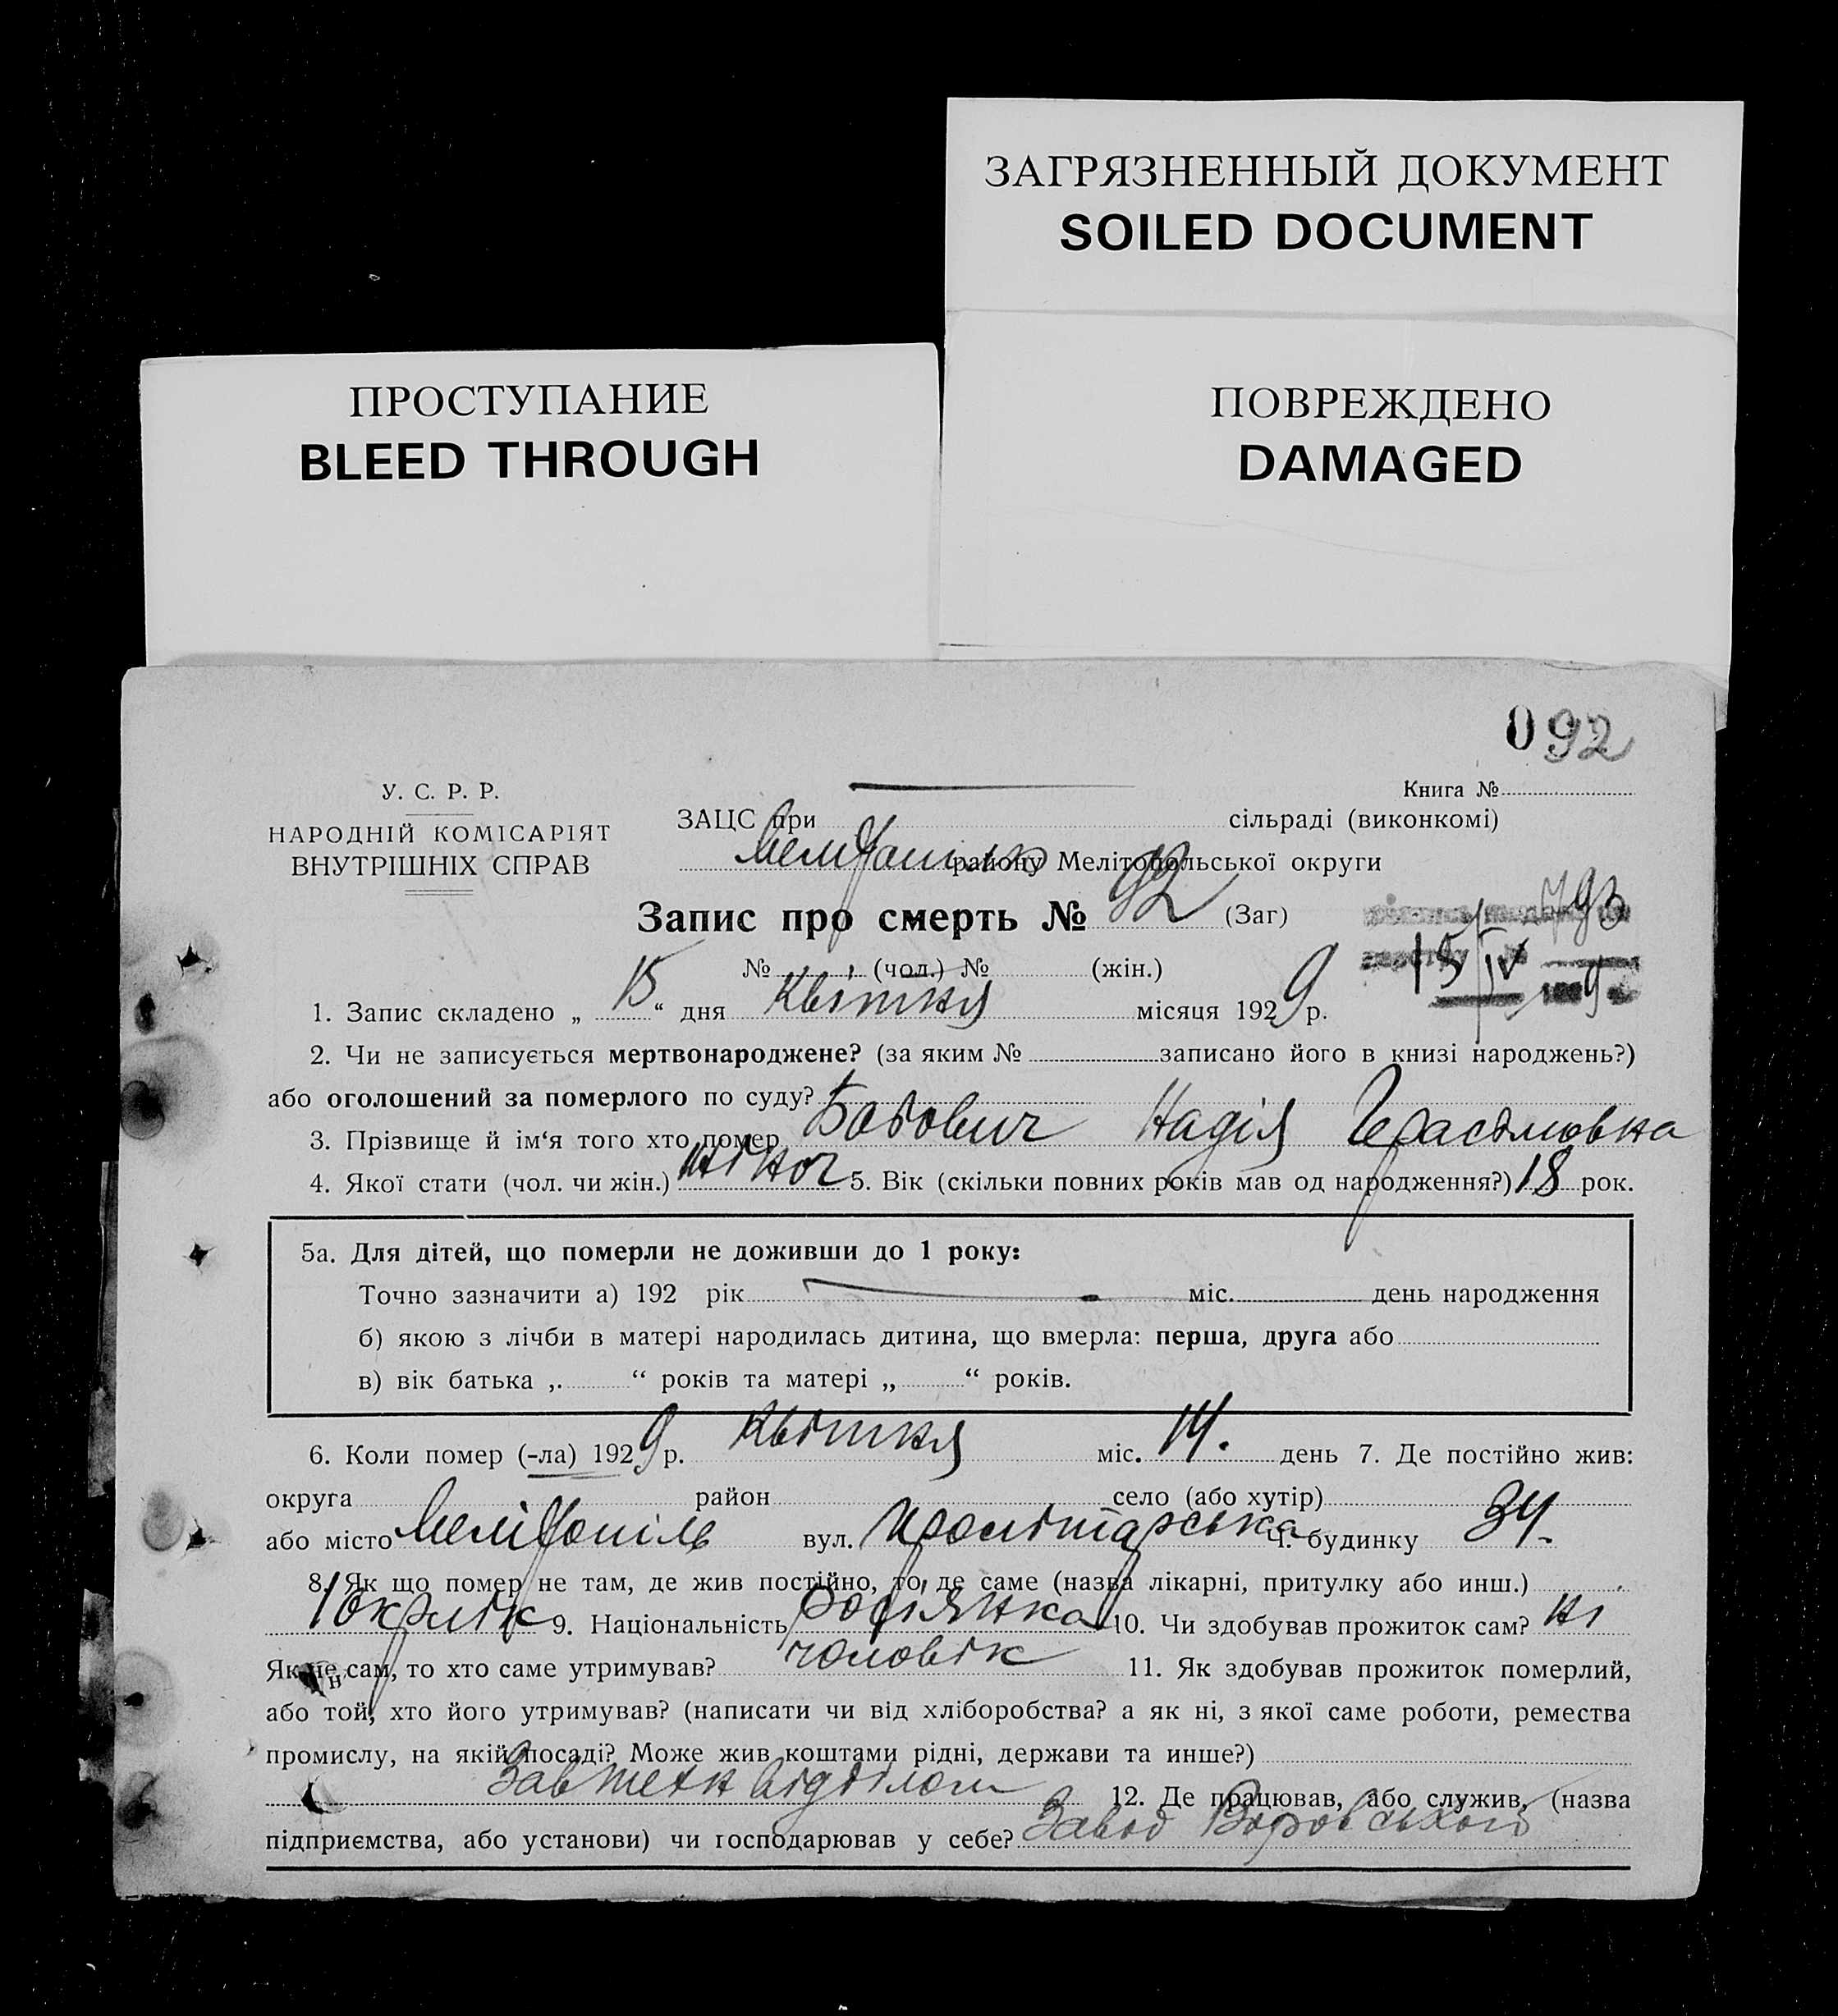 ЗАГРЯЗНЕННЫЙ ДОКУМЕНТ
SOILED DOCUMENT
ПРОСТУПАНИЕ
BLEED THROUGH
ПОВРЕЖДЕНО
DAMAGED
092
У. С. Р. Р.
НАРОДНІЙ КОМІСАРІЯТ
ВНУТРІШНІХ СПРАВ
Книга №
ЗАЦС при сільраді (виконкомі)
району Мелітопольської округи
Запис про смерть № 92 (Заг)
793
15/IV 9
№ (чол.) № (жін.)
1. Запис складено „ 15 “ дня Квітня місяця 1929 р.
2. Чи не записується мертвонароджене? (за яким № записано його в книзі народжень?)
або оголошений за померлого по суду?
3. Прізвище й ім‘я того хто помер Надія Герасімовна
4. Якої стати (чол. чи жін.) жіноч 5. Вік (скільки повних років мав од народження?) 18 рок.
5а. Для дітей, що померли не доживши до 1 року:
Точно зазначити а) 192 рік міс. день народження
б) якою з лічби в матері народилась дитина, що вмерла: перша, друга або
в) вік батька „ “ років та матері „ “ років.
6. Коли помер (-ла) 1929 р. Квітня міс. 14. день 7. Де постійно жив:
округа район село (або хутір)
або місто Мелітопіль вул. Пролітарська Ч. будинку 34.
8. Як що помер не там, де жив постійно, то де саме (назва лікарні, притулку або инш.)
1 Окрлік 9. Національність Росіянка 10. Чи здобував прожиток сам? ні
Як не сам, то хто саме утримував? чоловік 11. Як здобував прожиток померлий,
або той, хто його утримував? (написати чи від хліборобства? а як ні, з якої саме роботи, ремества
промислу, на якій посаді? Може жив коштами рідні, держави та инше?)
Зав техн відділом 12. Де працював, або служив, (назва
підприємства, або установи) чи господарював у себе? Завод Воровського